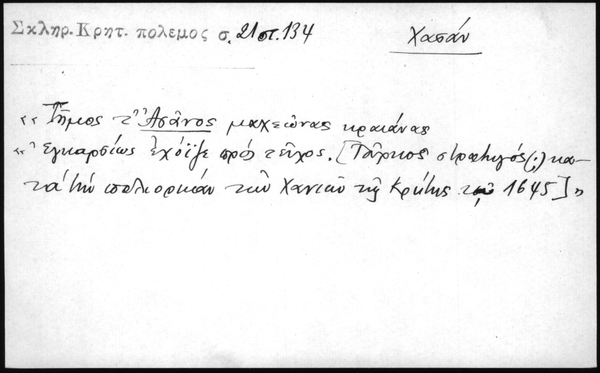 Σκληρ. Κρητ. πολεμος σ. 21 στ. 134
Χασάν
«Τῆμος τ' Ἀσᾶνος μαχεώνας κραιάνας
« Ἐγκαρσίως ἐχόϊζε πρός τεῖχος. [Τοῦρκος στρατηγός(;) κα-
τά τήν πολιορκίαν τῶν Χανίων τῆς Κρήτης τῷ 1645]»